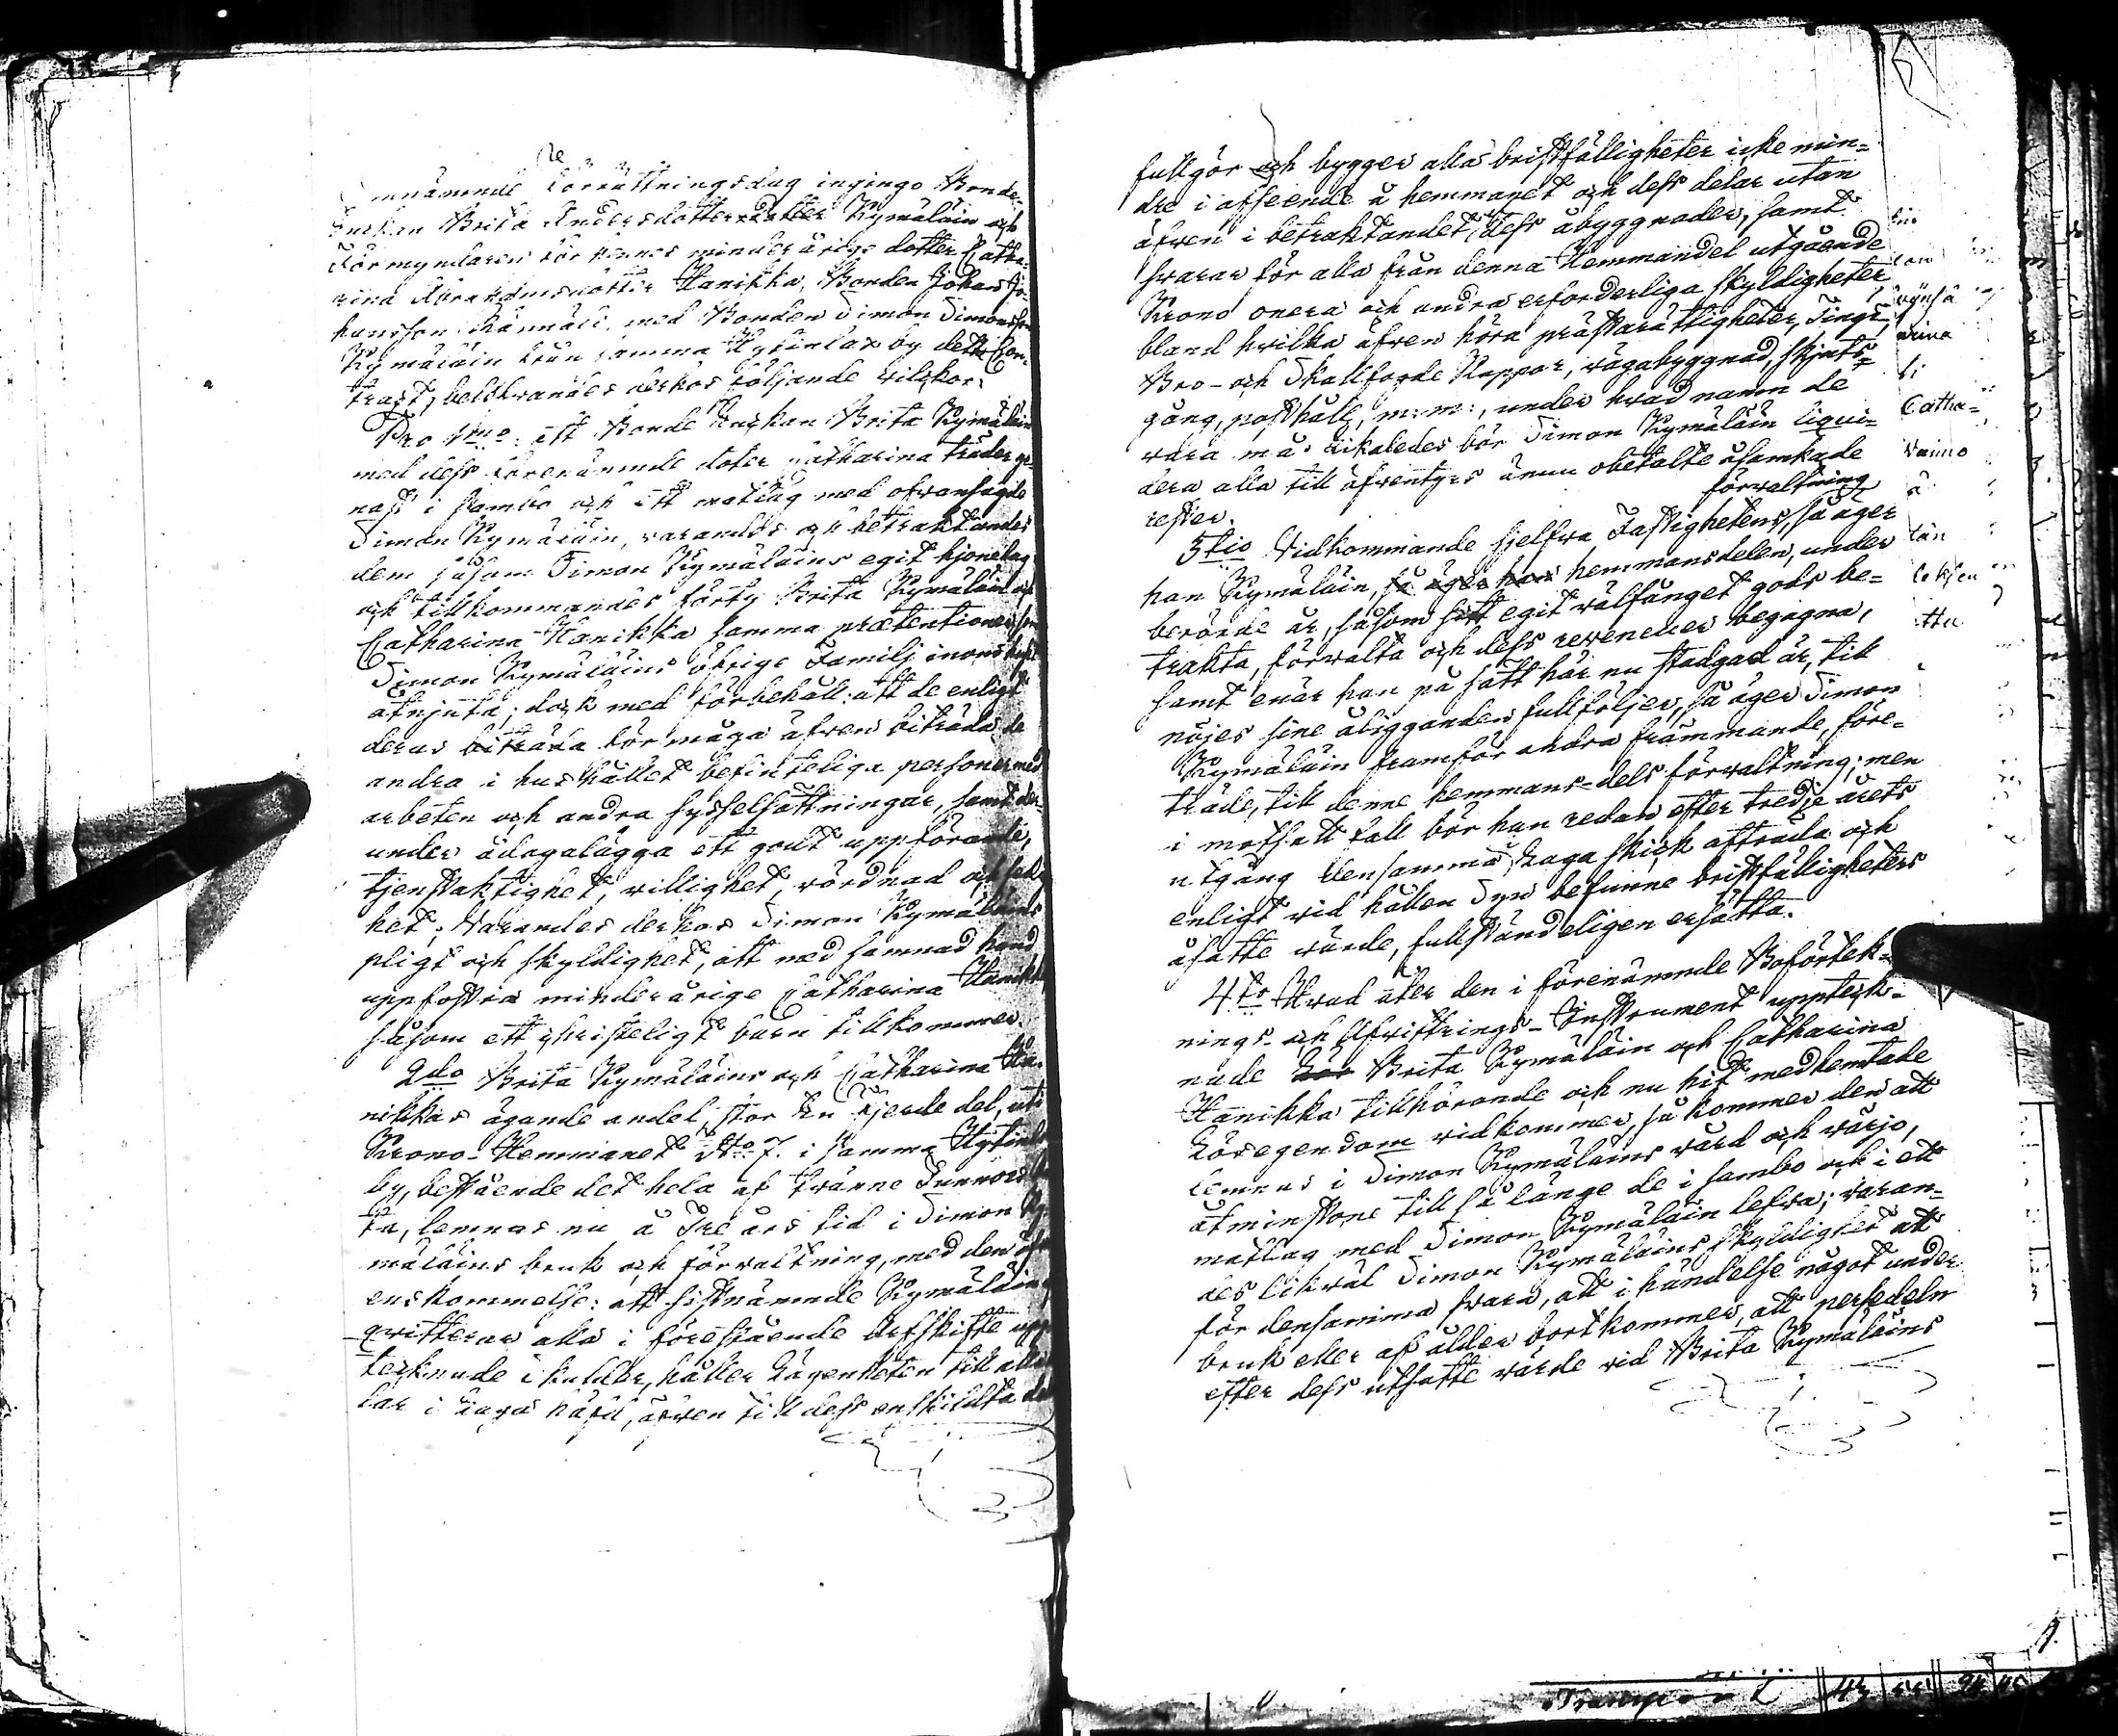 Omnämnde Förrättningsdag ingingo Bonde-
Enckan Brita Andersdotter Kymäläin och
Förmyndaren för hennes minderårige dotter Catha-
rina Abrahamsdotter Hanikka, Bonden Johan Jo-
hansson med Bonden Simon Simonsson
Kymäläin från samma by detta Con-
tract, belefvandes derhos följande vilkor:
Pro 1mo: att Bonde Enckan Brita Kymäläin
med dess förenämnde doter Catharina träder ge-
nast i sambo och ett matlag med ofvansagde
Simon Kymäläin, varandes och betraktandes
dem såsom Simon Kymäläins egit hjonelag
och tillkommandes förty Brita Kymäläin och
Catharina Hanikka samma prætentioner som
Simon Kymäläins öfrige Familj
åtnjuta; dock med förbehåll: att de enligt
deras förmåga äfven biträda de
andra i hushållet befinteliga personer med
arbeten och andra sysselsättningar, samt der-
under ådagalägga ett godt uppförande,
tjenstaktighet, villighet, vördnad och
het; Varandes derhos Simon Kymäläins
pligt och skyldighet, att med samnad hand
uppfostra minderårige Catharina Hanikka
såsom ett christeligt barn tillkommer.
2do Brita Kymäläins och Catharina Ha-
nikkas ägande andel, stor En fjerde del, uti
Krono-Hemmanet No 7. i samma
by, bestående det hela af tvänne
ta, lemnas nu å Tre års tid i Simon Ky-
mäläins bruk och förvaltning, med den öfver-
enskommelse: att sistnämnde Kymäläin
qvitterar alla i förestående Arfskifte upp-
tecknade skulder, håller Lägenheten till alla de-
lar i Laga häfd, äfven till dess enskildta de
fullgör och bygger alla bristfälligheter icke min-
dre i afseende å hemmanet och dess delar utan
äfven i betraktandet af dess åbyggnader, samt
svarar för alla från denna Hemmandel utgående
Krono onera och andra erforderliga skyldigheter,
bland hvilka äfven höra prästarättigheter, Tings,
Bro- och Skallfogde Kappar, vägabyggnad, skjuts-
gång, posthåll, m: m:, under hvad namn de
vara må. likaledes bör Simon Kymäläin liqui-
dera alla till äfventyrs ännu obetalte åsamkade
rester.
förvaltning
3tio Vidkommande sjelfva Fastighetens, så äger
han Kymäläin, så äger han hemmansdelen, under
berörde år, såsom sitt egit välfånget gods be-
trakta, förvalta och dess revenuer begagna,
samt enär han på sätt här nu stadgad är, till
nöjes sine åligganden fullföljer, så äger Simon
Kymäläin framför andra främmande, före-
träde, till denne hemmans-dels förvaltning; men
i motsatt fall bör han redan efter tredje årets
utgång densamma i Laga skick afträda och
enligt vid hållen Syn befunne bristfälligheters
åsatte värde, fullständeligen ersätta.
4to Hvad åter den i förenämnde Boförtek-
nings- och Afvittrings-Instrument upptek-
nade Lös Brita Kymäläin och Catharina
Hanikka tillhörande och nu hit medhemtade
Lösegendom vidkommer, så kommer den att
lemnas i Simon Kymäläins vård och värjo,
åtminstone till så länge de i sambo och i ett
matlag med Simon Kymäläin lefva; varan-
des likväl Simon Kymäläins skyldighet att
för densamma svara, att i händelse något under
bruk eller af ålder bortkommer, att persedeln
efter dess utsatte värde vid Brita Kymäläins
Catha-
Transport